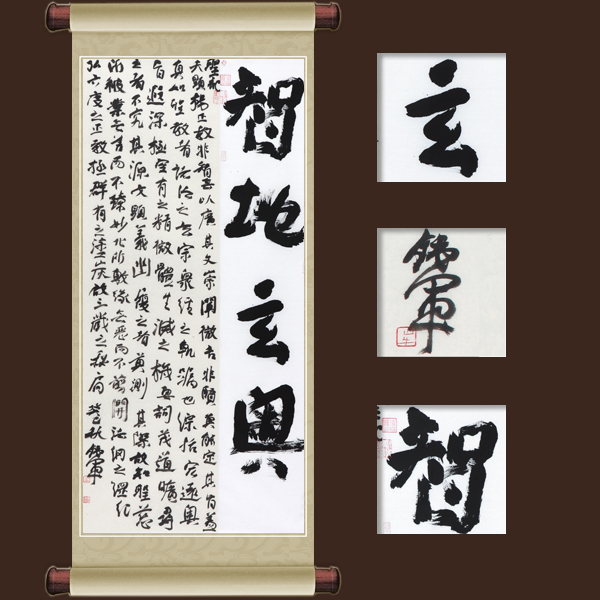 智地玄奧
聖記
夫顯揚正教非智無以廣其文崇闡微言非賢莫能定其旨蓋
真如聖教者諸法之玄宗眾經之軌躅也綜括宏遠奧
旨遐深極空有之精微體生滅之機要詞茂道曠尋
之者不究其源文顯義幽履之者莫測其際故知聖慈
所被業無善而不臻妙化所敷緣無惡而不翦開法網之綱紀
弘六度之正教拯群有之塗炭啟三藏之秘扃 癸巳秋 錢軍
玄
錢軍
智